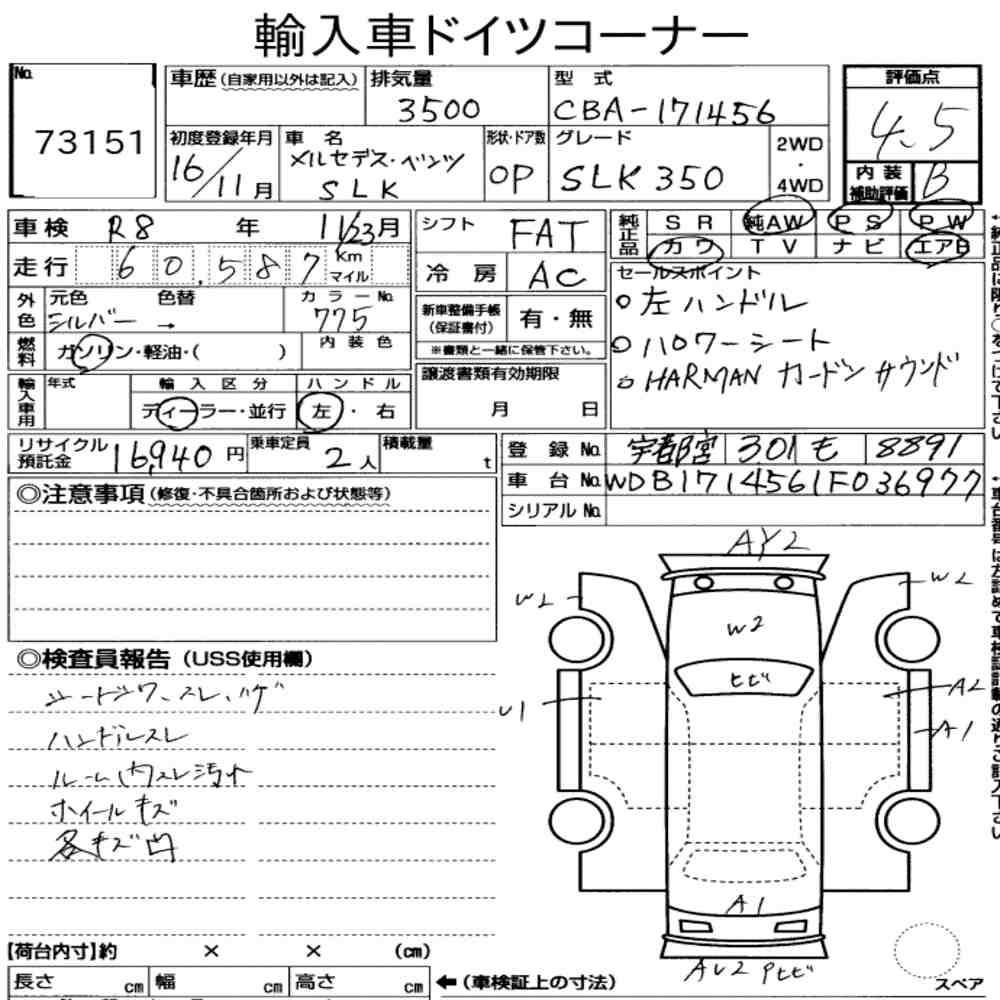 輸入車ドイツコーナー
No. 73151
車歴 (自家用以外は記入)
排気量 3500
型式 CBA-171456
評価点 4.5
初度登録年月 16/11月
車名 メルセデス・ベンツ SLK
形状・ドア数 OP
グレード SLK 350
2WD・4WD
内装補助評価 B
車検 R8年 11/23月
シフト FAT
純正品 SR 純AW PS PW
カワ TV ナビ エアB
走行 60,587 Km マイル
冷房 AC
セールスポイント
左ハンドル
ハロワーシート
HARMAN カードン サウンド
外色 元色 シルバー → 色替
カラーNo. 775
新車整備手帳(保証書付) 有・無
※書類と一緒に保管下さい。
燃料 ガソリン・軽油・( )
内装色
輸入車用 年式
輸入区分 ディーラー・並行
ハンドル 左・右
譲渡書類有効期限
月 日
リサイクル預託金 16,940円
乗車定員 2人
積載量 t
登録No. 宇都宮 301 も 8891
車台No. WDB1714561F036977
シリアルNo.
◎注意事項 (修復・不具合箇所および状態等)
◎検査員報告 (USS使用欄)
シートシワ、スレ、ハゲ
ハンドルスレ
ルーム内スレ汚れ
ホイールキズ
各キズ凹
AY2
W2
W2
W2
ヒビ
U1
A2
A1
A1
AU2 Pヒビ
【荷台内寸】約 × × (cm)
長さ cm 幅 cm 高さ cm
←(車検証上の寸法)
スペア